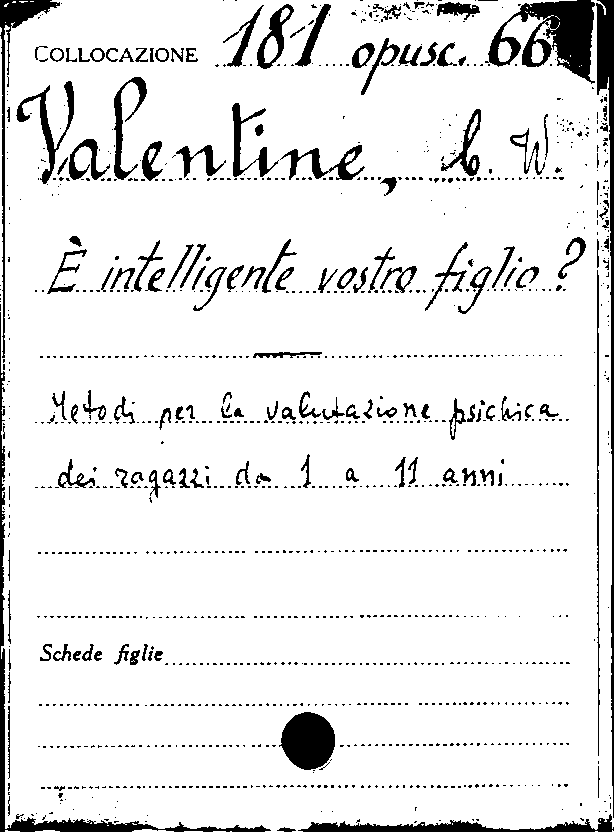 COLLOCAZIONE 181 opusc. 66
Valentine, C. W.
È intelligente vostro figlio?
Metodi per la valutazione psichica
dei ragazzi da 1 a 11 anni
Schede figlie